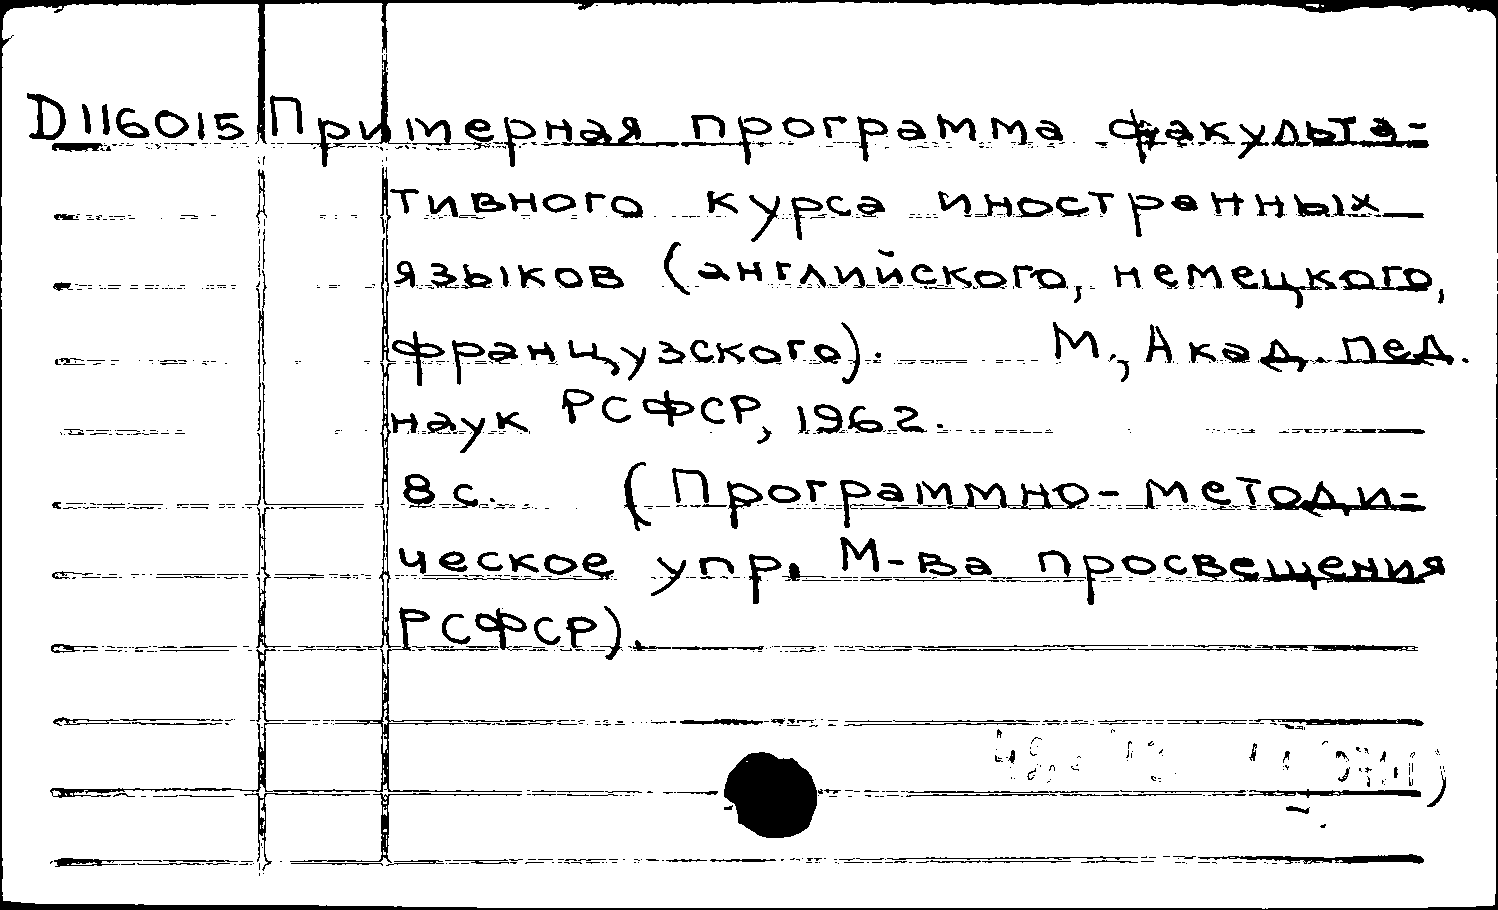 D116015 Примерная программа факульта-
тивного курса иностранных
языков (английского, немецкого,
французского). М., Акад. пед.
наук РСФСР, 1962.
8 с. (Программно-методи-
ческое упр. М-ва просвещения
РСФСР).